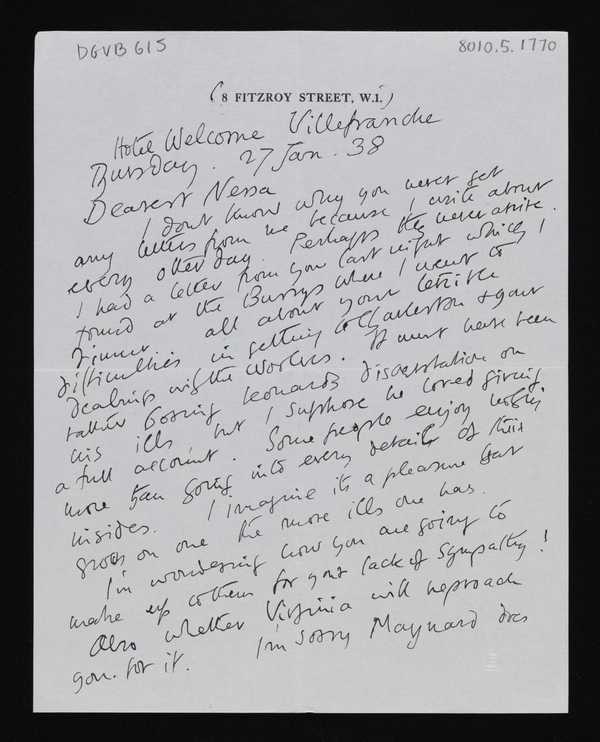 DGVB 615
8010.5.1770
(8 FITZROY STREET, W.1.)
Hotel Welcome Villefranche
Thursday. 27 Jan. 38
Dearest Nessa
I don't know why you never get
any letters from me because I write about
every other day. Perhaps they never arrive.
I had a letter from you last night which I
found at the Bussys where I went to
dinner all about your terrible
difficulties in getting to Charleston & your
dealings with the Woolves. It must have been
rather boring Leonard's dissertation on
his ills but I suppose he loved giving
a full account. Some people enjoy nothing
more than going into every detail of their
insides. I imagine its a pleasure that
grows on one the more ills one has.
I'm wondering how you are going to
make up to them for your lack of sympathy!
Also whether Virginia will reproach
you for it. I'm sorry Maynard does